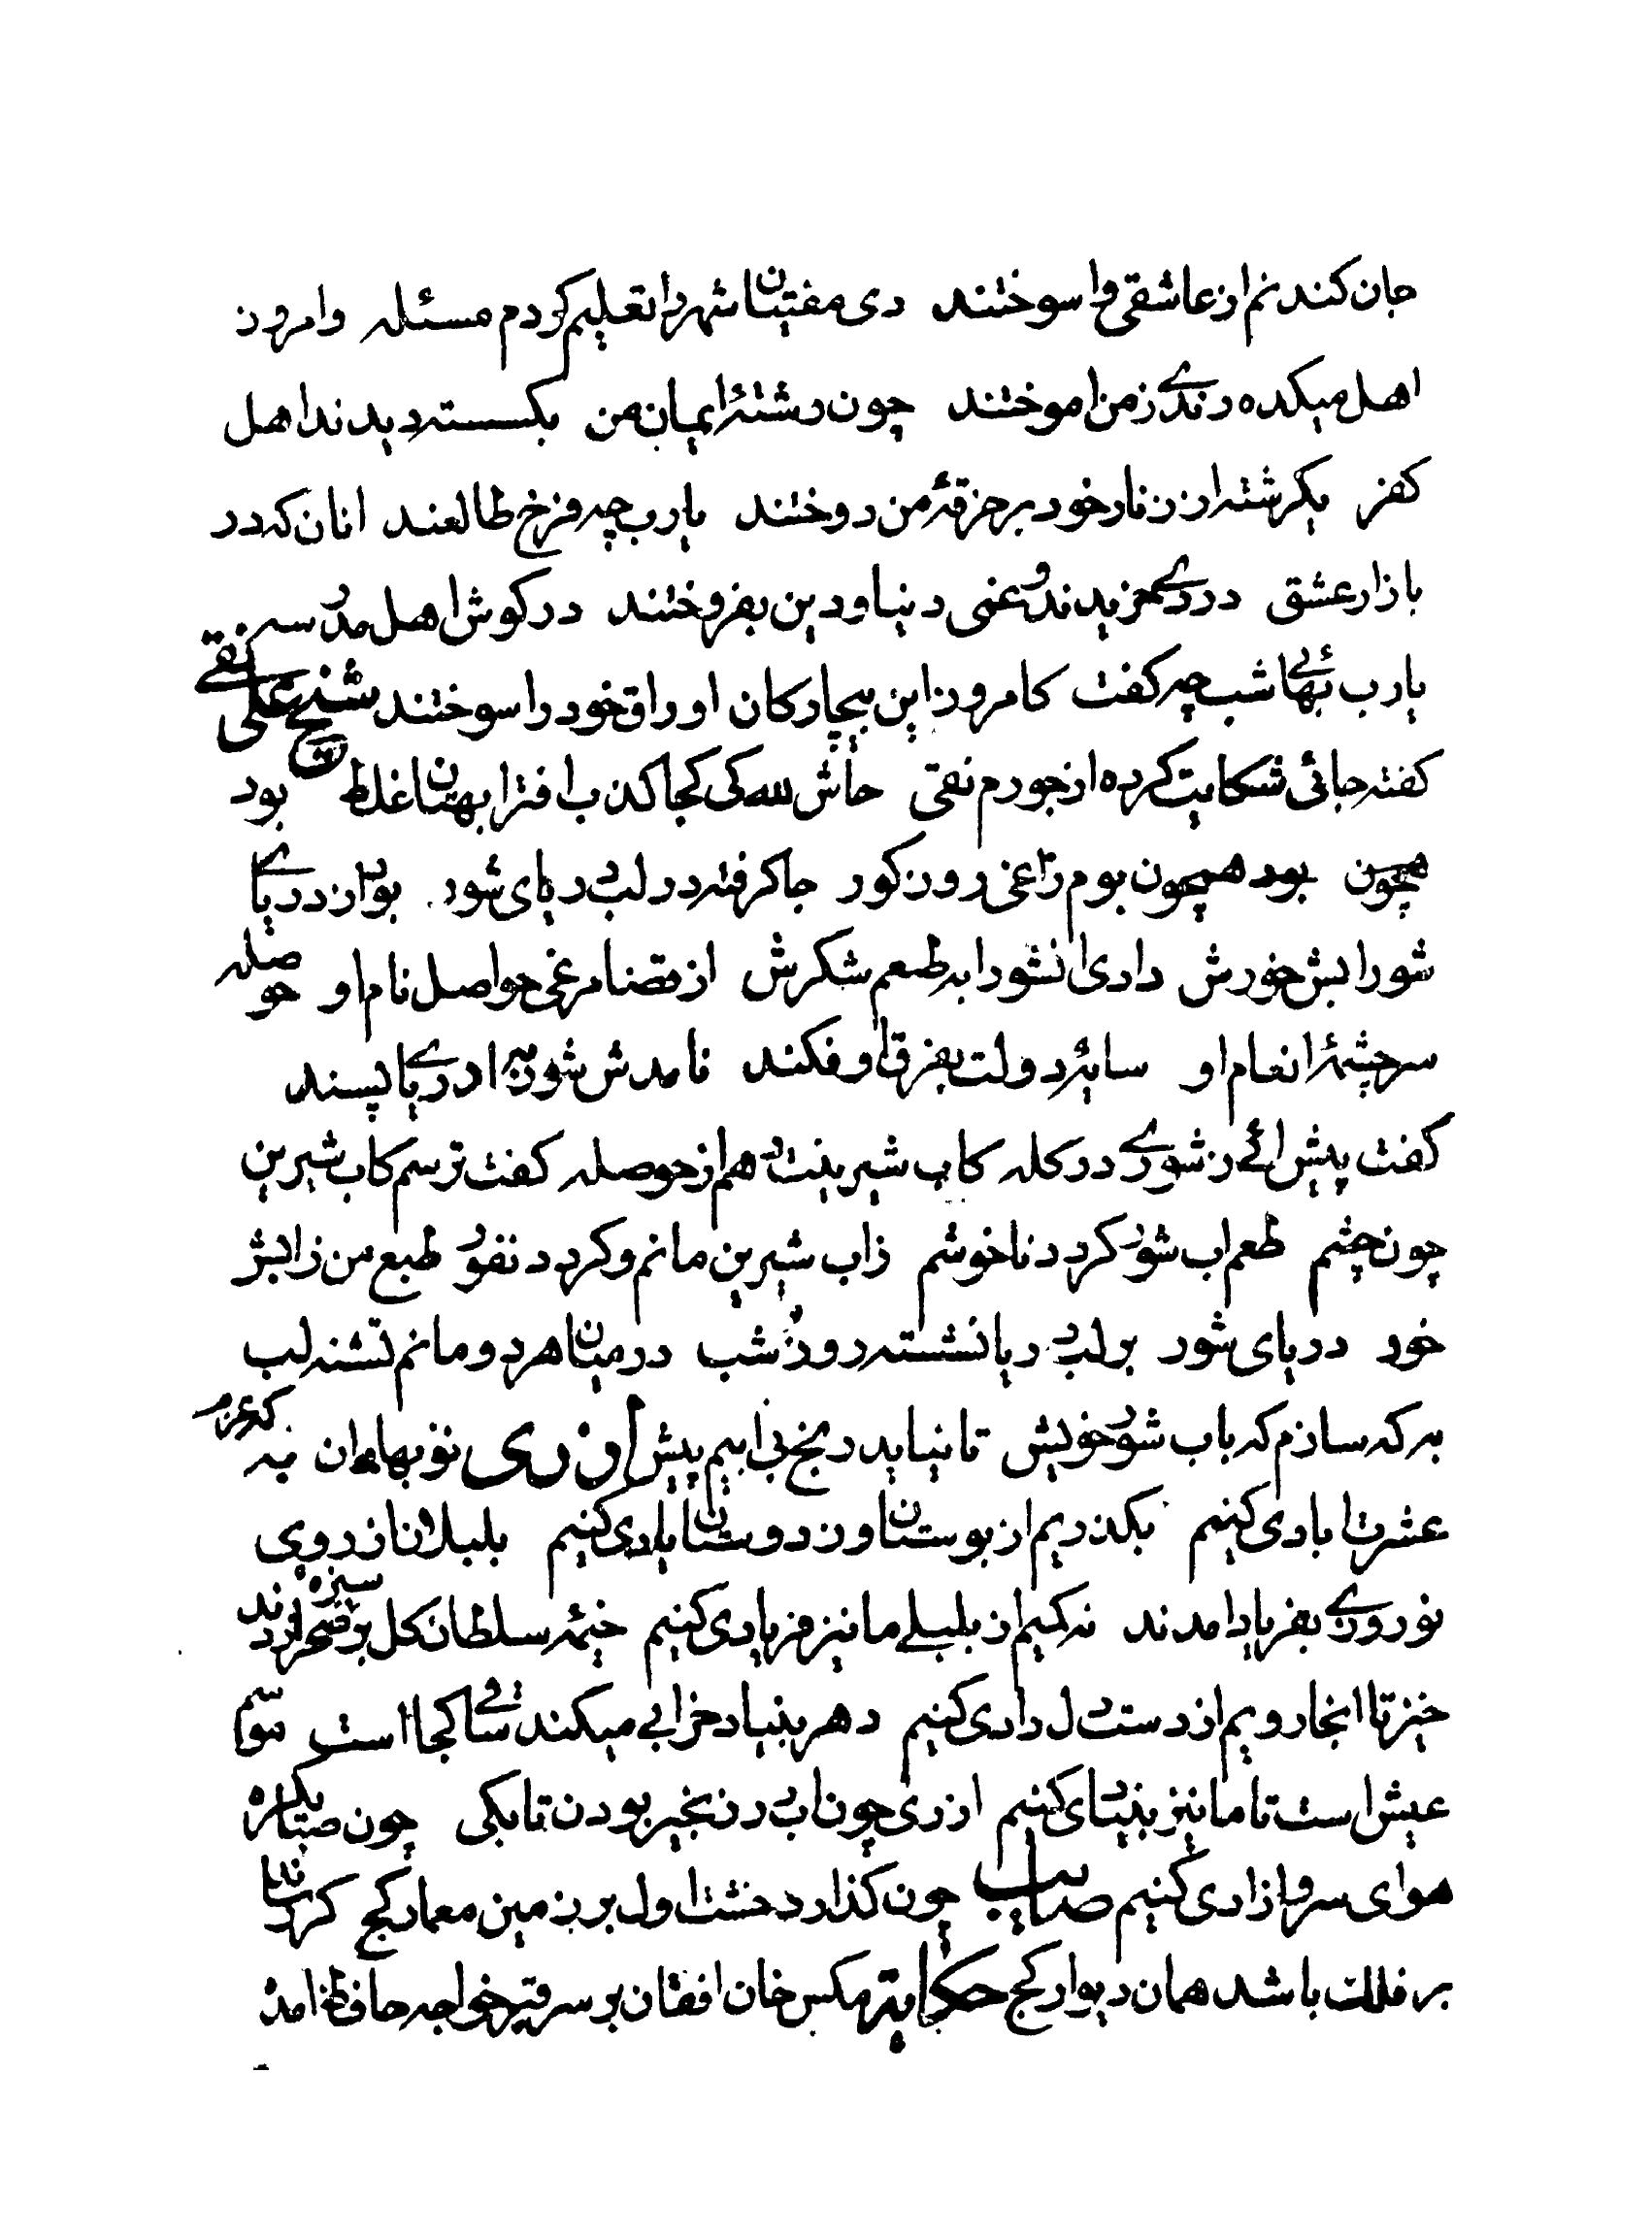 جان کندنم از عاشقی وا سوختند دی مفتیان شهر را تعلیم کردم مسئله وامروز
اهل میکده رندی ز من اموختند چون رشتهٔ ایمان من بکسسته دیدند اهل
کفر یکرشته از زنار خود بر خرقهٔ من دوختند یارب چه فرخ طالعند انان که در
بازار عشق دردی خریدند و غم دنیا و دین بفروختند در کوش اهل مدرسه
یارب بهائی شب چه کفت کامروز این بیچارکان اوراق خود را سوختند شیخ علی نقی
کفته جائی شکایت کرده از جورم نقی حاش لله کی کجا کذب افترا بهتان غلط بود
همچون بود همچون بوم زاغی روز کور جا کرفته در لب دریای شور بودی از دریای
شور ابش خورش دادی ان شورابه طعم شکرش از قضا مرغی حواصل نام او حوصله
سرچشمهٔ انعام او سایهٔ دولت بفرق او فکند نامدش شورابه دریا پسند
کفت پیش ائی ز شوری در کله کاب شیرینت دهم از حوصله کفت ترسم کاب شیرین
چون چشم طعم اب شور کردد ناخوشم زاب شیرین مانم و کردد نفور طبع من زابش
خور دریای شور بر لب دریا نشسته روز شب در میان هر دو مانم تشنه لب
به که سازم که باب شور خویش تا نیاید رنج بی ابیم پیش اذری نو بهاران به که عزم
عشرت ابادی کنیم بکذریم از بوستان وز دوستان یادی کنیم بلبلان از روی
نوروزی بفریاد امدند نه کمیم از بلبلی ما نیز فریادی کنیم خیمهٔ سلطان کل بر سبزه صحرا زدند
خیز تا انجا رویم از دست دل دادی کنیم دهر بنیاد خرابی میکند ساقی کجا است موسم
عیش است تا ما نیز بنیادی کنیم اذری چون اب در زنجیر بودن تا بکی چون صبا یکره
هوای سرو ازادی کنیم صایب چون کذارد خشت اول بر زمین معمار کج کر رساند
بر فلک باشد همان دیوار کج حکایت مکس خان افغان بر سر قبر خواجه حافظ امد